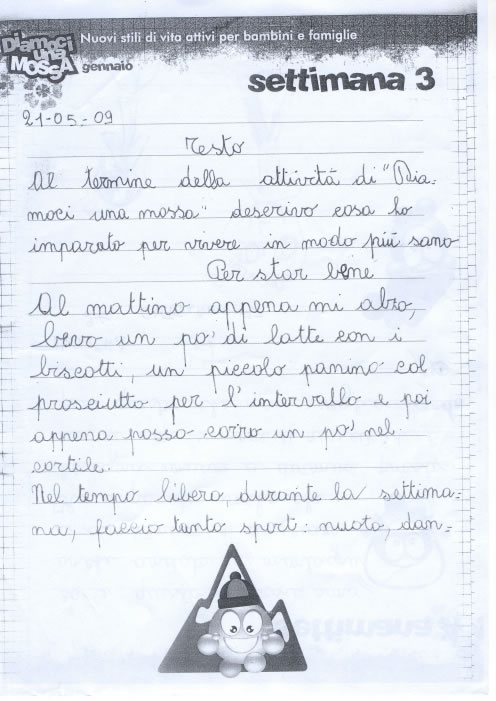 Diamoci una MOSSA
Nuovi stili di vita attivi per bambini e famiglie
gennaio
settimana 3
21-05-09
Testo
Al termine della attività di "Dia-
moci una mossa" descrivo cosa ho
imparato per vivere in modo più sano
Per star bene
Al mattino appena mi alzo,
bevo un po' di latte con i
biscotti, un piccolo panino col
prosciutto per l'intervallo e poi
appena posso corro un po' nel
cortile.
Nel tempo libero, durante la settima=
na, faccio tanto sport: nuoto, dan=